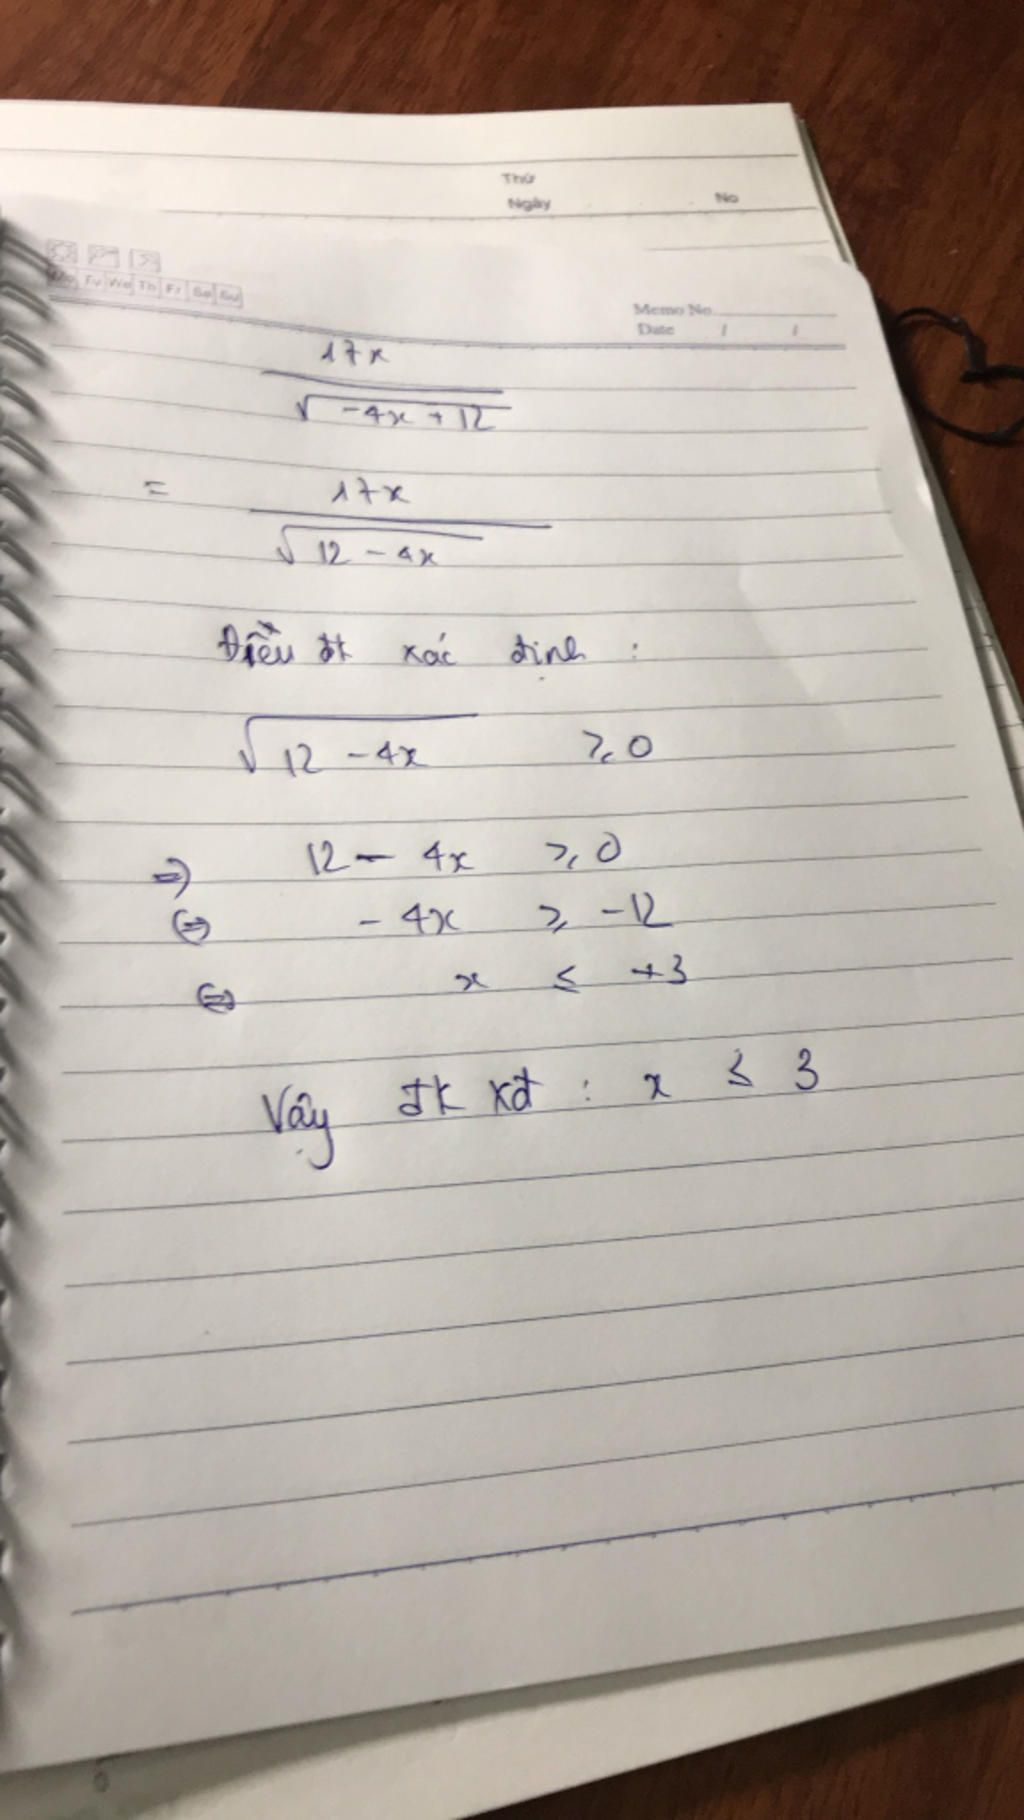 Thứ
Ngày No
Mo Tu We Th Fr Sa Su
Memo No.
Date / /
17x
√-4x + 12
= 17x
√12 - 4x
Điều đk xác định :
√12 - 4x ⩾ 0
=> 12 - 4x ⩾ 0
<=> - 4x ⩾ -12
<=> x ≤ +3
Vậy đk xđ : x ≤ 3